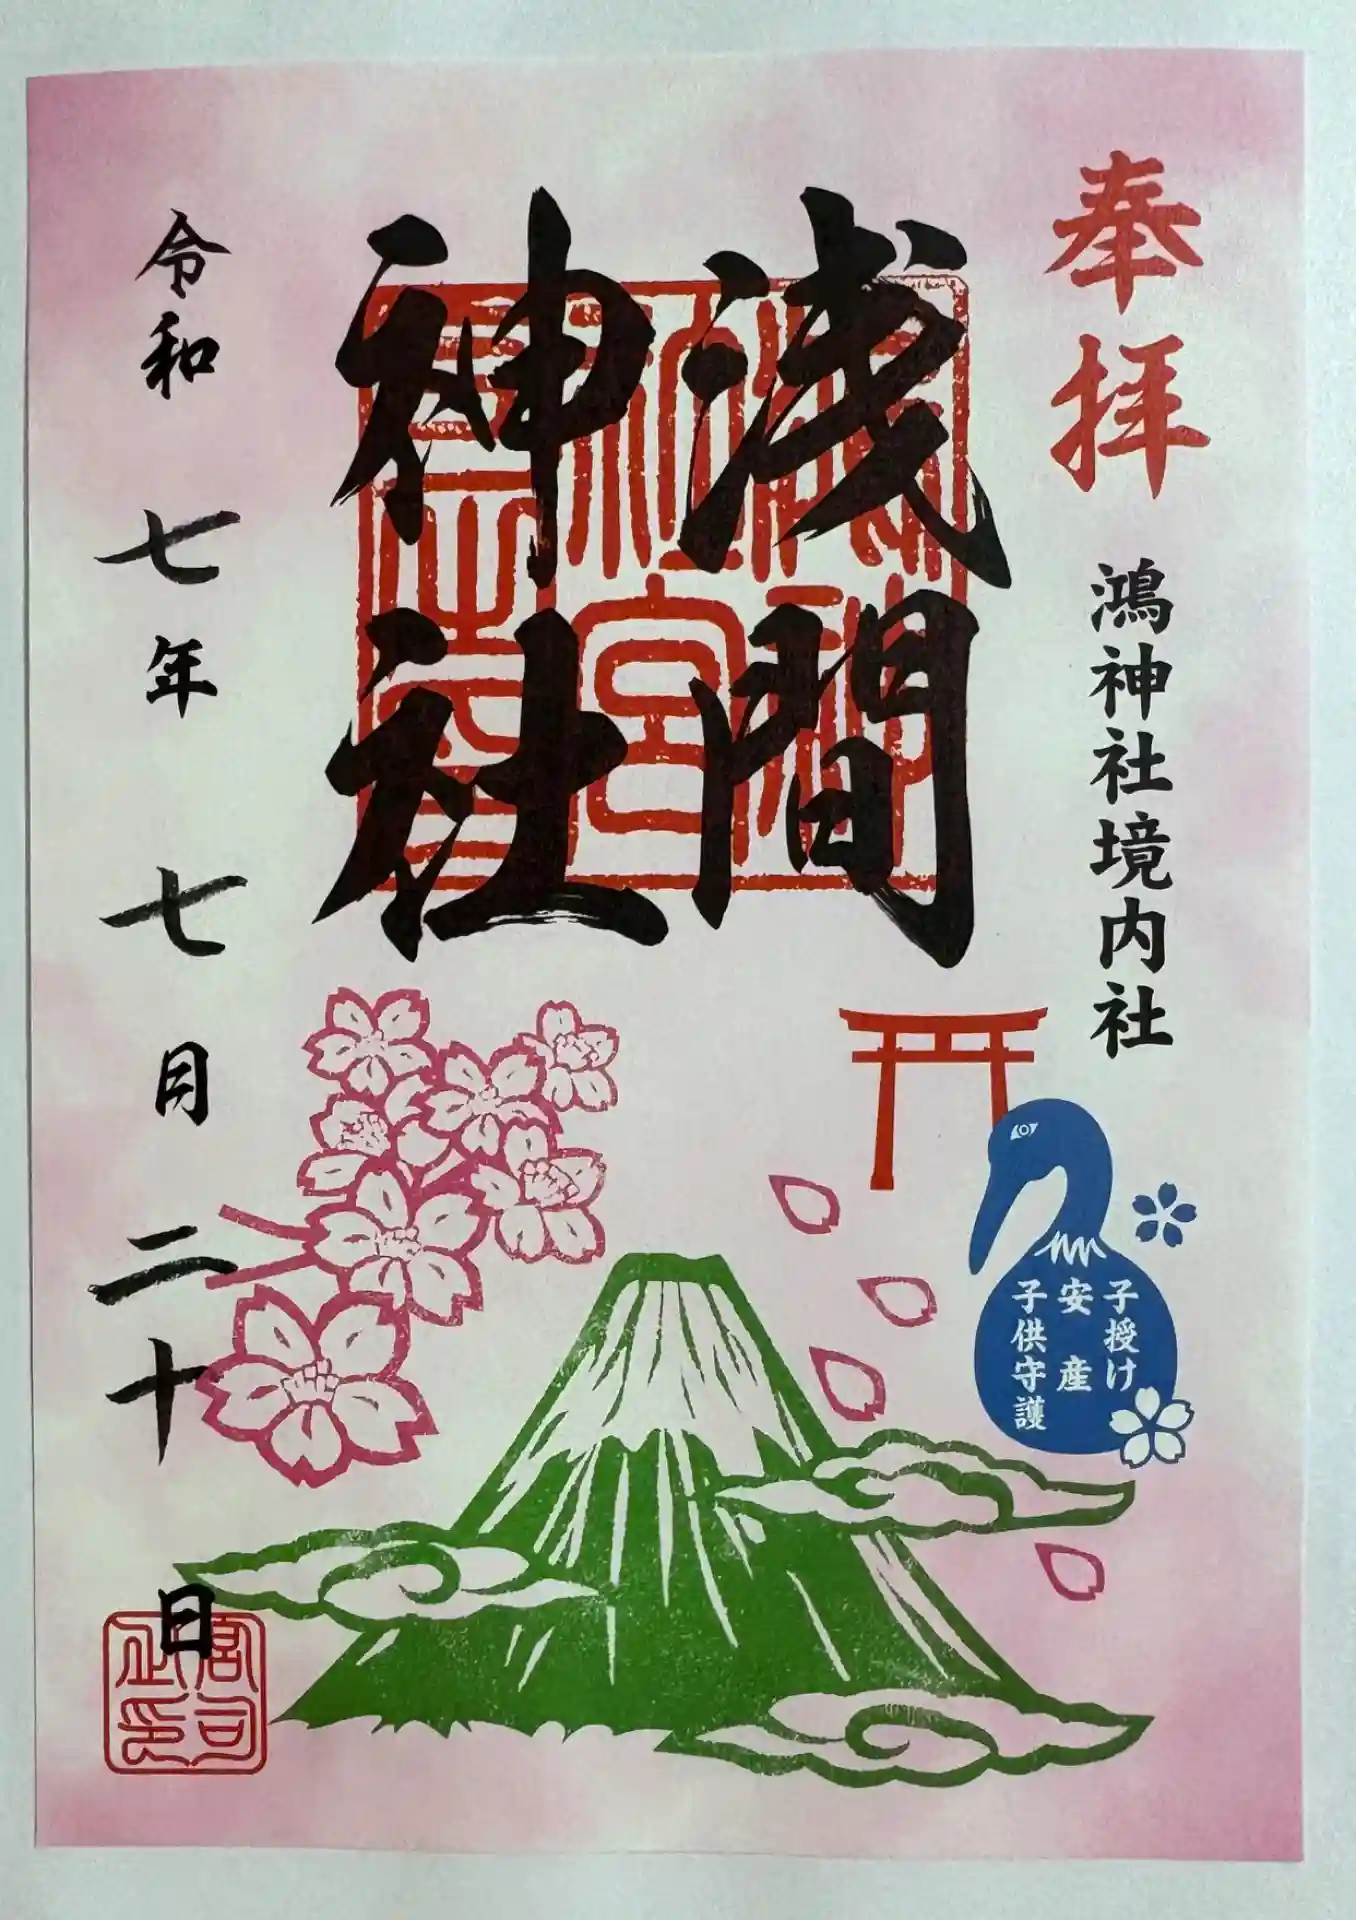 奉拝
鴻神社境内社
浅間
神社
子授け
安産
子供守護
令和七年七月二十日
宮司
之印